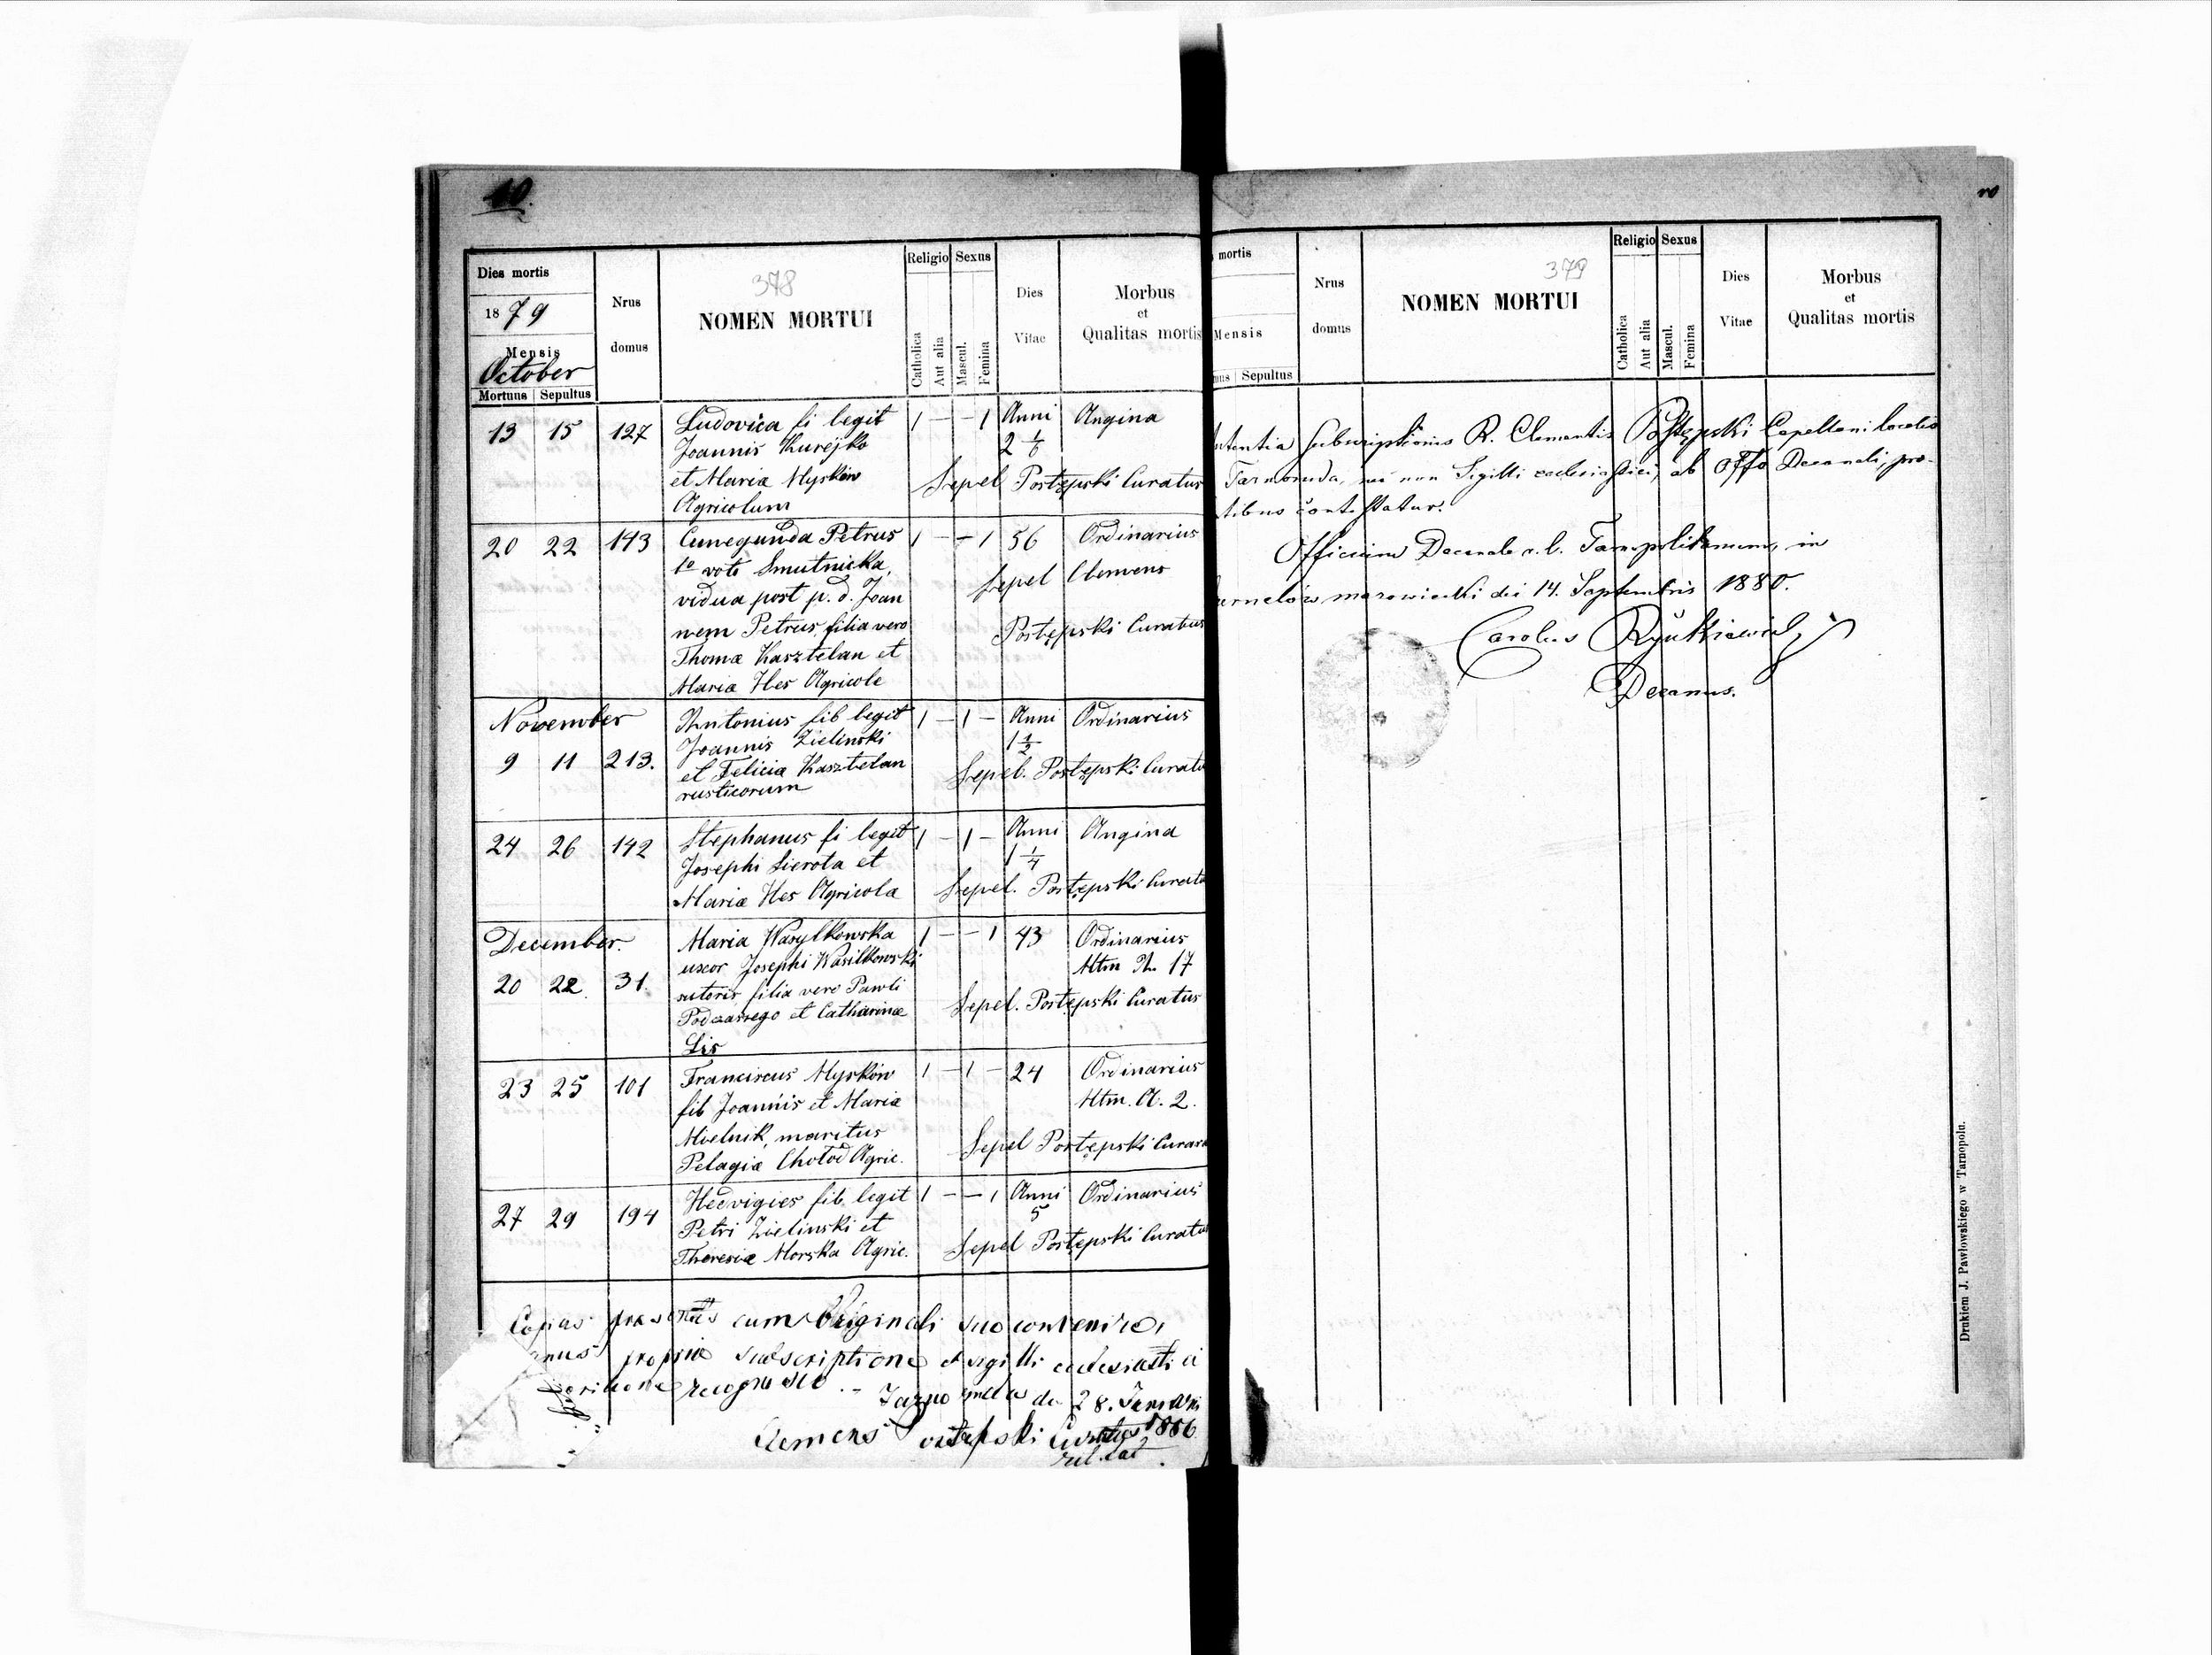 10.
Dies mortis
1879
Mensis
October
Mortuus Sepultus
Nrus domus
378
NOMEN MORTUI
Religio Sexus
Catholica Aut alia Mascul. Femina
Dies Vitae
Morbus et Qualitas mortis
13 15 127 Ludovica fi legit 1 – – 1 Anni Angina
Joannis Kurejko 2
et Mariæ Myśków Sepel Postępski Curatus
Agricolum
20 22 143 Cunegunda Petrus 1 – – 1 56 Ordinarius
1º voto Smutnicka,
vidua post p. d. Joan Sepel Clemens
nem Petrus, filia vero Postępski Curatus
Thomæ Kasztelan et
Mariæ Hes Agricole
November Antonius fil legit 1 – 1 – Anni Ordinarius
Joannis Zielinski 1 1/2
9 11 213. et Felicia Kasztelan Sepel. Postępski Curatu
rusticorum
24 26 142 Stephanus fi legit 1 – 1 – Anni Angina
Josephi Sierota et 1 1/4
Mariæ Hes Agricola Sepel. Postępski Curatu
December. Maria Wasylkowska 1 – – 1 43 Ordinarius
uxor Josephi Wasilkowski Attm N. 17
20 22. 31. sutoris filia vero Pawli Sepel. Postępski Curatus
et Catharinæ
Lis
23 25 101 Franciscus Myśków 1 – 1 – 24 Ordinarius
fil Joannis et Mariæ Attm. A. 2.
Mielnik, maritus Sepel Postępski
Pelagiæ Chołod Agric.
27 29 194 Hedvigies fil. legit 1 – – 1 Anni Ordinarius
Petri Zielinski et 5
Theresiæ Morska Agric. Sepel Postępski Curatu
Copias cum Originali suo convenire,
propria subscriptione et sigilli ecclesiasti ci
recognosco. – 28. Januari
Clemens Postępski Curatus 1886
mortis
Mensis
Sepultus
Nrus domus
379
NOMEN MORTUI
Religio Sexus
Catholica Aut alia Mascul. Femina
Dies Vitae
Morbus et Qualitas mortis
Subscriptionis R. Clementis Postępski Capellani localis
Tarnoruda, Sigilli ecclesiastici, ab Offo Decanali, prae-
tibus contestatur.
Officium Decanale r. l. Tarnopoliense, in
marowiecki die 14. Septembris 1880.
Carolus
Decanus.
Drukiem J. Pawłowskiego w Tarnopolu.